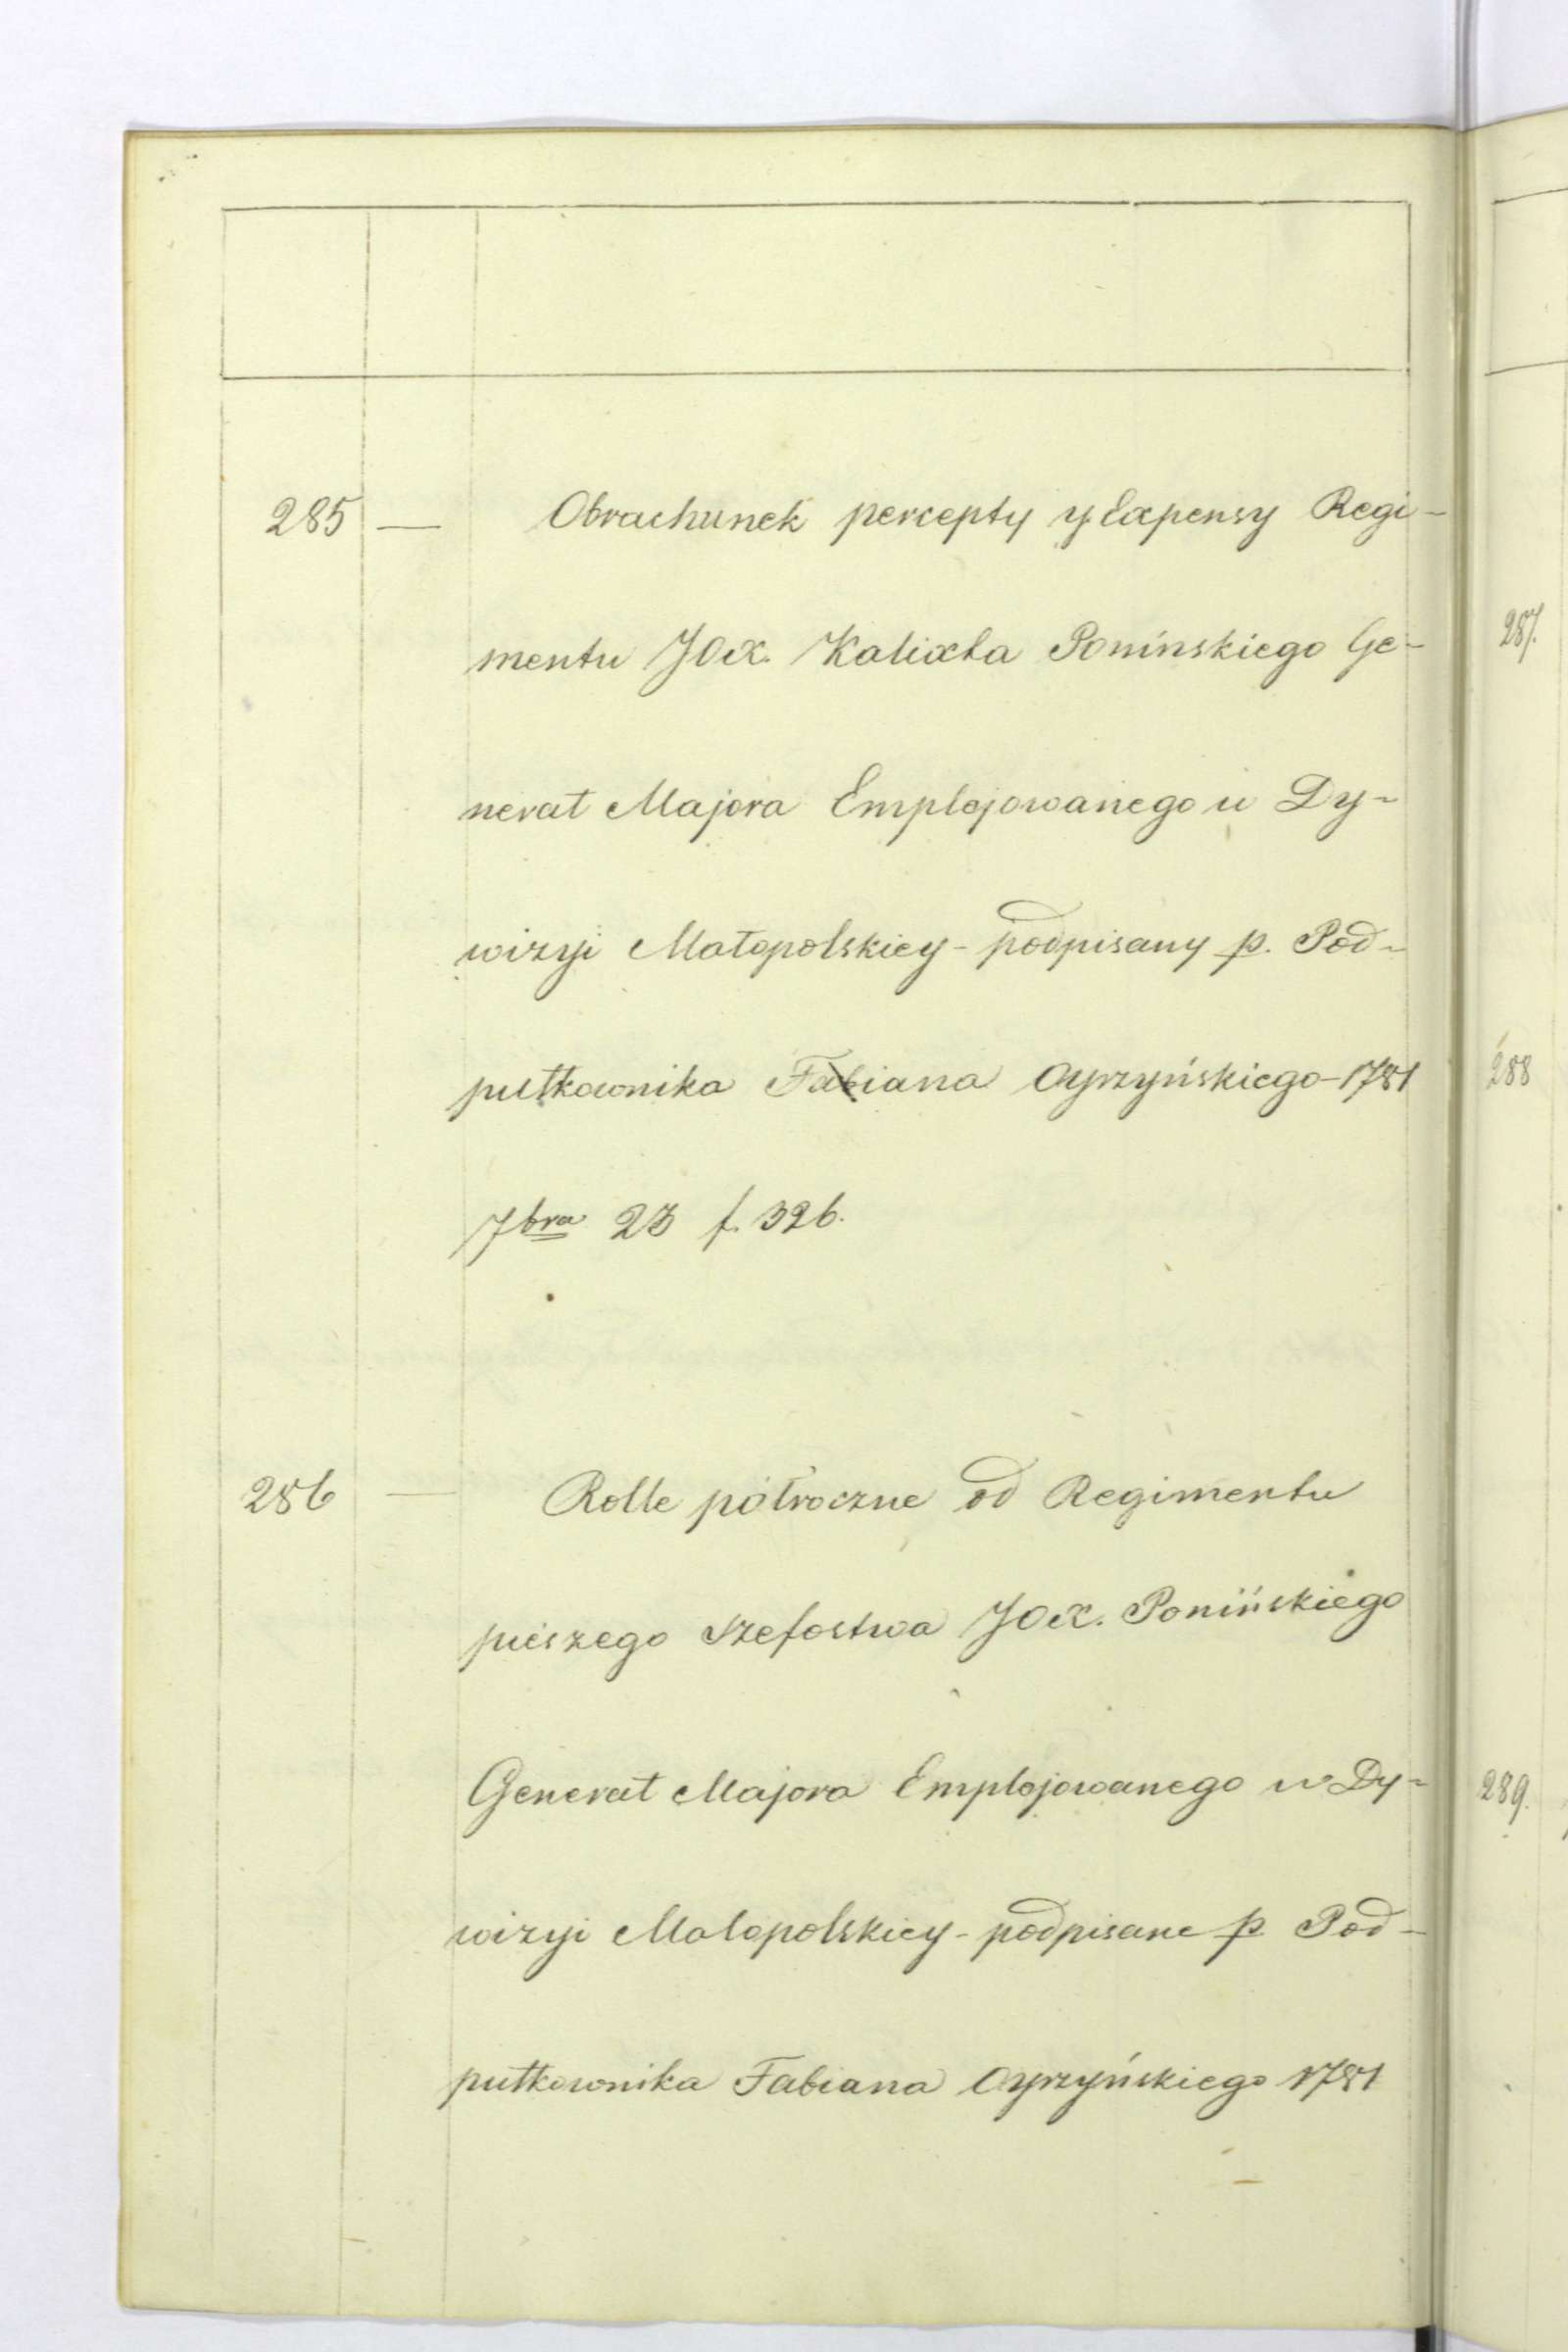 285 — Obrachunek percepty y Expensy Regi-
mentu JOX. Kalixta Ponińskiego Ge-
nerał Majora Emplojowanego w Dy-
wizyi Małopolskiey - podpisany p. Pod-
pułkownika Fabiana Oyrzyńskiego - 1781
7bra 23 f. 326.
286 — Rolle półroczne od Regimentu
pieszego Szefostwa JOX. Ponińskiego
Generał Majora Emplojowanego w Dy-
wizyi Malopolskiey - podpisane p. Pod-
pułkownika Fabiana Oyrzyńskiego 1781
287.
288
289.